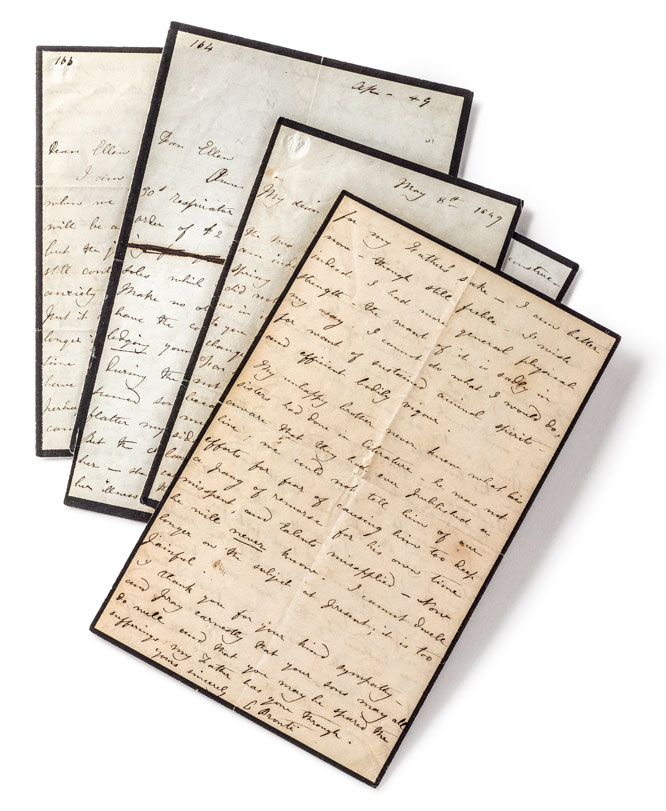 166
Dear Ellen
I am
when we
will be a
but the
still cont
anxiety
Put it
longer
time
have
perha
can
164
Apr — 49
Dear Ellen
30s respirator
order of £2
which
Make no ob
have the co
ledging your
During the
flatter my
But the
her — she
her illness
May 8th 1849
My dear
the two
am in
Spring
did not
was in
to you
change
Fan
not
side
construc-
for my Father's sake — I am better
now — though still feeble — I wish
indeed I had more general physical
strength — the want of it is sadly in
my way. I cannot do what I would do,
for want of sustained animal spirits —
and efficient bodily vigour.
My unhappy brother never knew what his
sisters had done in literature — he was not
aware that they had ever published a
line; we could not tell him of our
efforts for fear of causing him too deep
a pang of remorse for his own time
misspent, and talents misapplied — Now
he will never know. I cannot dwell
longer on the subject at present; it is too
painful.
I thank you for your kind sympathy —
and pray earnestly that your sons may all
do well and that you may be spared the
sufferings my Father has gone through.
Yours sincerely
C Brontë